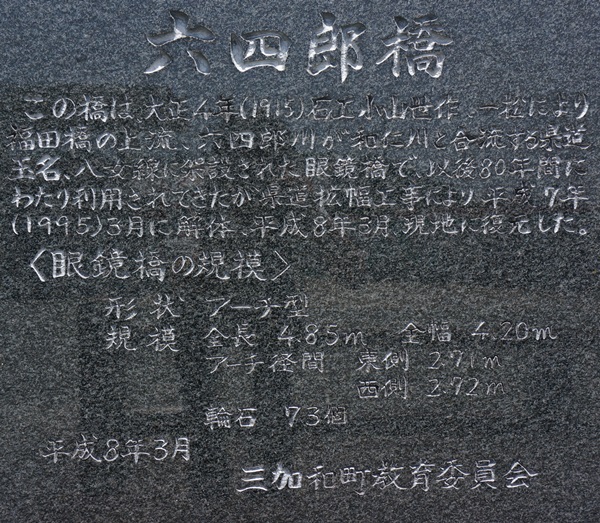 六四郎橋
この橋は、大正4年(1915)石工小山世作、一松により
福田橋の上流、六四郎川が和仁川と合流する県道
玉名、八女線に架設された眼鏡橋で、以後80年間に
わたり利用されてきたが県道拡幅工事により平成7年
(1995)3月に解体、平成8年3月、現地に復元した。
〈眼鏡橋の規模〉
形状 アーチ型
規模 全長 4.85m 全幅 4.20m
アーチ径間 東側 2.71m
西側 2.72m
輪石 73個
平成8年3月
三加和町教育委員会